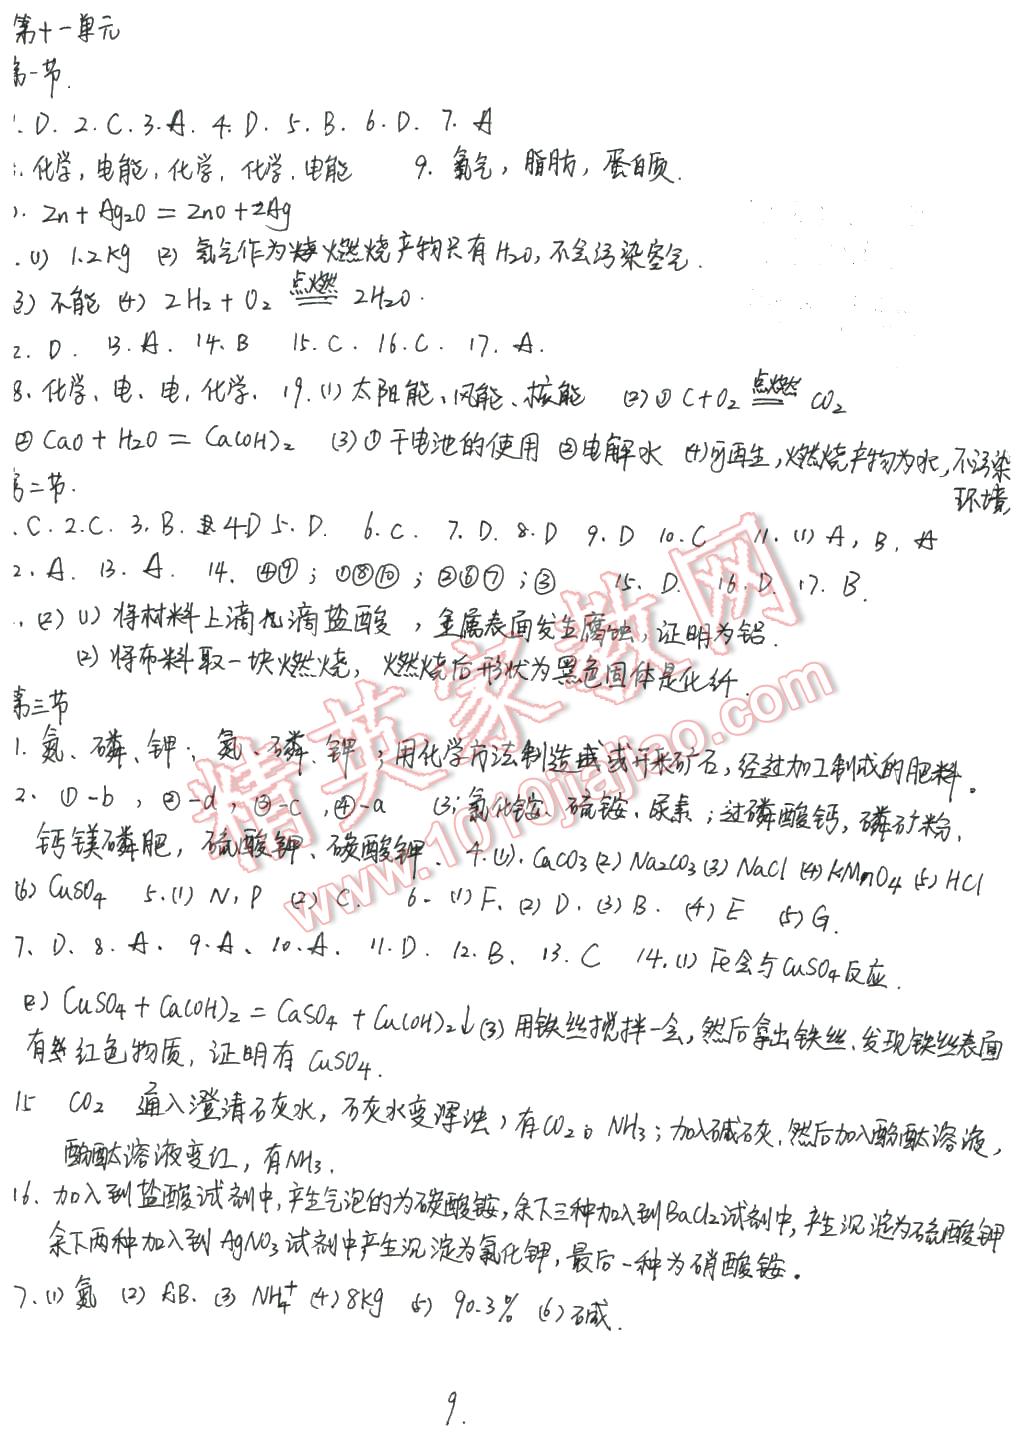 第十一单元
第一节.
1. D. 2. C. 3. A. 4. D. 5. B. 6. D. 7. A
化学, 电能, 化学, 化学, 电能 9. 氢气, 脂肪, 蛋白质.
Zn + Ag₂O = ZnO + 2Ag
. (1) 1.2kg (2) 氢气作为燃烧产物只有H₂O, 不会污染空气.
3) 不能 (4) 2H₂ + O₂ 点燃 2H₂O.
2. D. 13. A. 14. B 15. C. 16. C. 17. A.
8. 化学、电、电, 化学. 19. (1) 太阳能、风能、核能 (2) ① C+O₂ 点燃 CO₂
② CaO + H₂O = Ca(OH)₂ (3) ① 干电池的使用 ② 电解水 (4) 可再生, 燃烧产物为水, 不污染
环境
第二节.
. C. 2. C. 3. B. 4 D 5. D. 6. C. 7. D. 8. D 9. D 10. C 11. (1) A, B, A
2. A. 13. A. 14. ④⑨; ①⑧⑩; ②⑥⑦; ③ 15. D. 16. D. 17. B.
. (2) (1) 将材料上滴几滴盐酸, 金属表面发生腐蚀, 证明为铝.
(2) 将布料取一块燃烧, 燃烧后形状为黑色固体是化纤.
第三节
1. 氮、磷、钾; 氮、磷、钾; 用化学方法制造或开采矿石, 经过加工制成的肥料。
2. ①-b, ②-d, ③-c, ④-a (3; 氯化铵、硫铵、尿素; 过磷酸钙, 磷矿粉,
钙镁磷肥, 硫酸钾、碳酸钾. 4. (1). CaCO₃ (2) Na₂CO₃ (3) NaCl (4) KMnO₄ (5) HCl
(6) CuSO₄ 5. (1) N, P (2) C. 6. (1) F. (2) D. (3) B. (4) E (5) G.
7. D. 8. A. 9. A. 10. A. 11. D. 12. B. 13. C 14. (1) Fe会与CuSO₄反应.
2) CuSO₄ + Ca(OH)₂ = CaSO₄ + Cu(OH)₂↓ (3) 用铁丝搅拌一会, 然后拿出铁丝. 发现铁丝表面
有红色物质, 证明有 CuSO₄.
15 CO₂ 通入澄清石灰水, 石灰水变浑浊, 有CO₂。NH₃; 加入碱石灰. 然后加入酚酞溶液,
酚酞溶液变红, 有NH₃.
16. 加入到盐酸试剂中, 产生气泡的为碳酸铵, 余下三种加入到BaCl₂试剂中, 产生沉淀为硫酸钾
余下两种加入到 AgNO₃ 试剂中产生沉淀为氯化钾, 最后一种为硝酸铵。
7. (1) 氮 (2) AB. (3) NH₄⁺ (4) 8kg (5) 90.3% (6) 碱.
9.
精英家教网
www.1010jiajiao.com